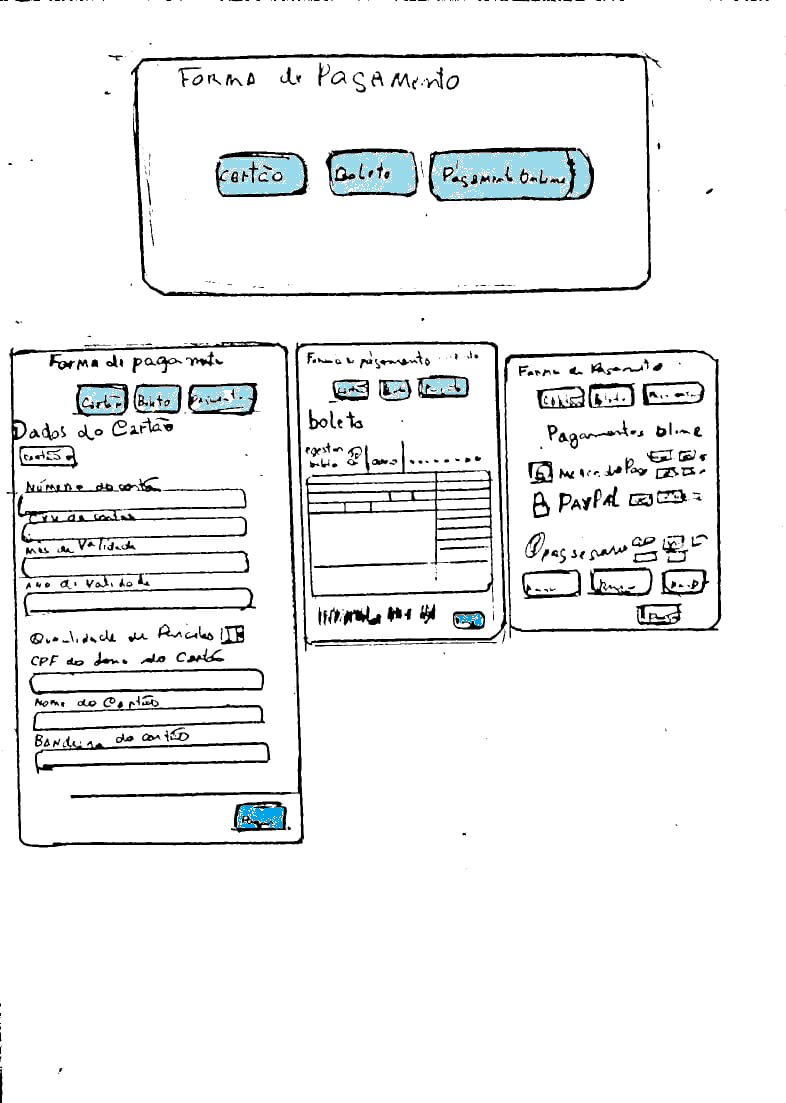 Forma de Pagamento
Cartão Boleto Pagamento Online
Forma de pagamento
Cartão Boleto Pagamento
Dados do Cartão
Cartão
Número do cartão
CVV do cartão
Mes de Validade
Ano de Validade
Qualidade de Parcelas
CPF do dono do Cartão
Nome do Cartão
Bandeira do cartão
Pagar
Forma de pagamento
Cartão Boleto
boleto
Forma de Pagamento
Cartão Boleto
Pagamentos Oline
Mercado Pago
PAYPAL
pagseguro